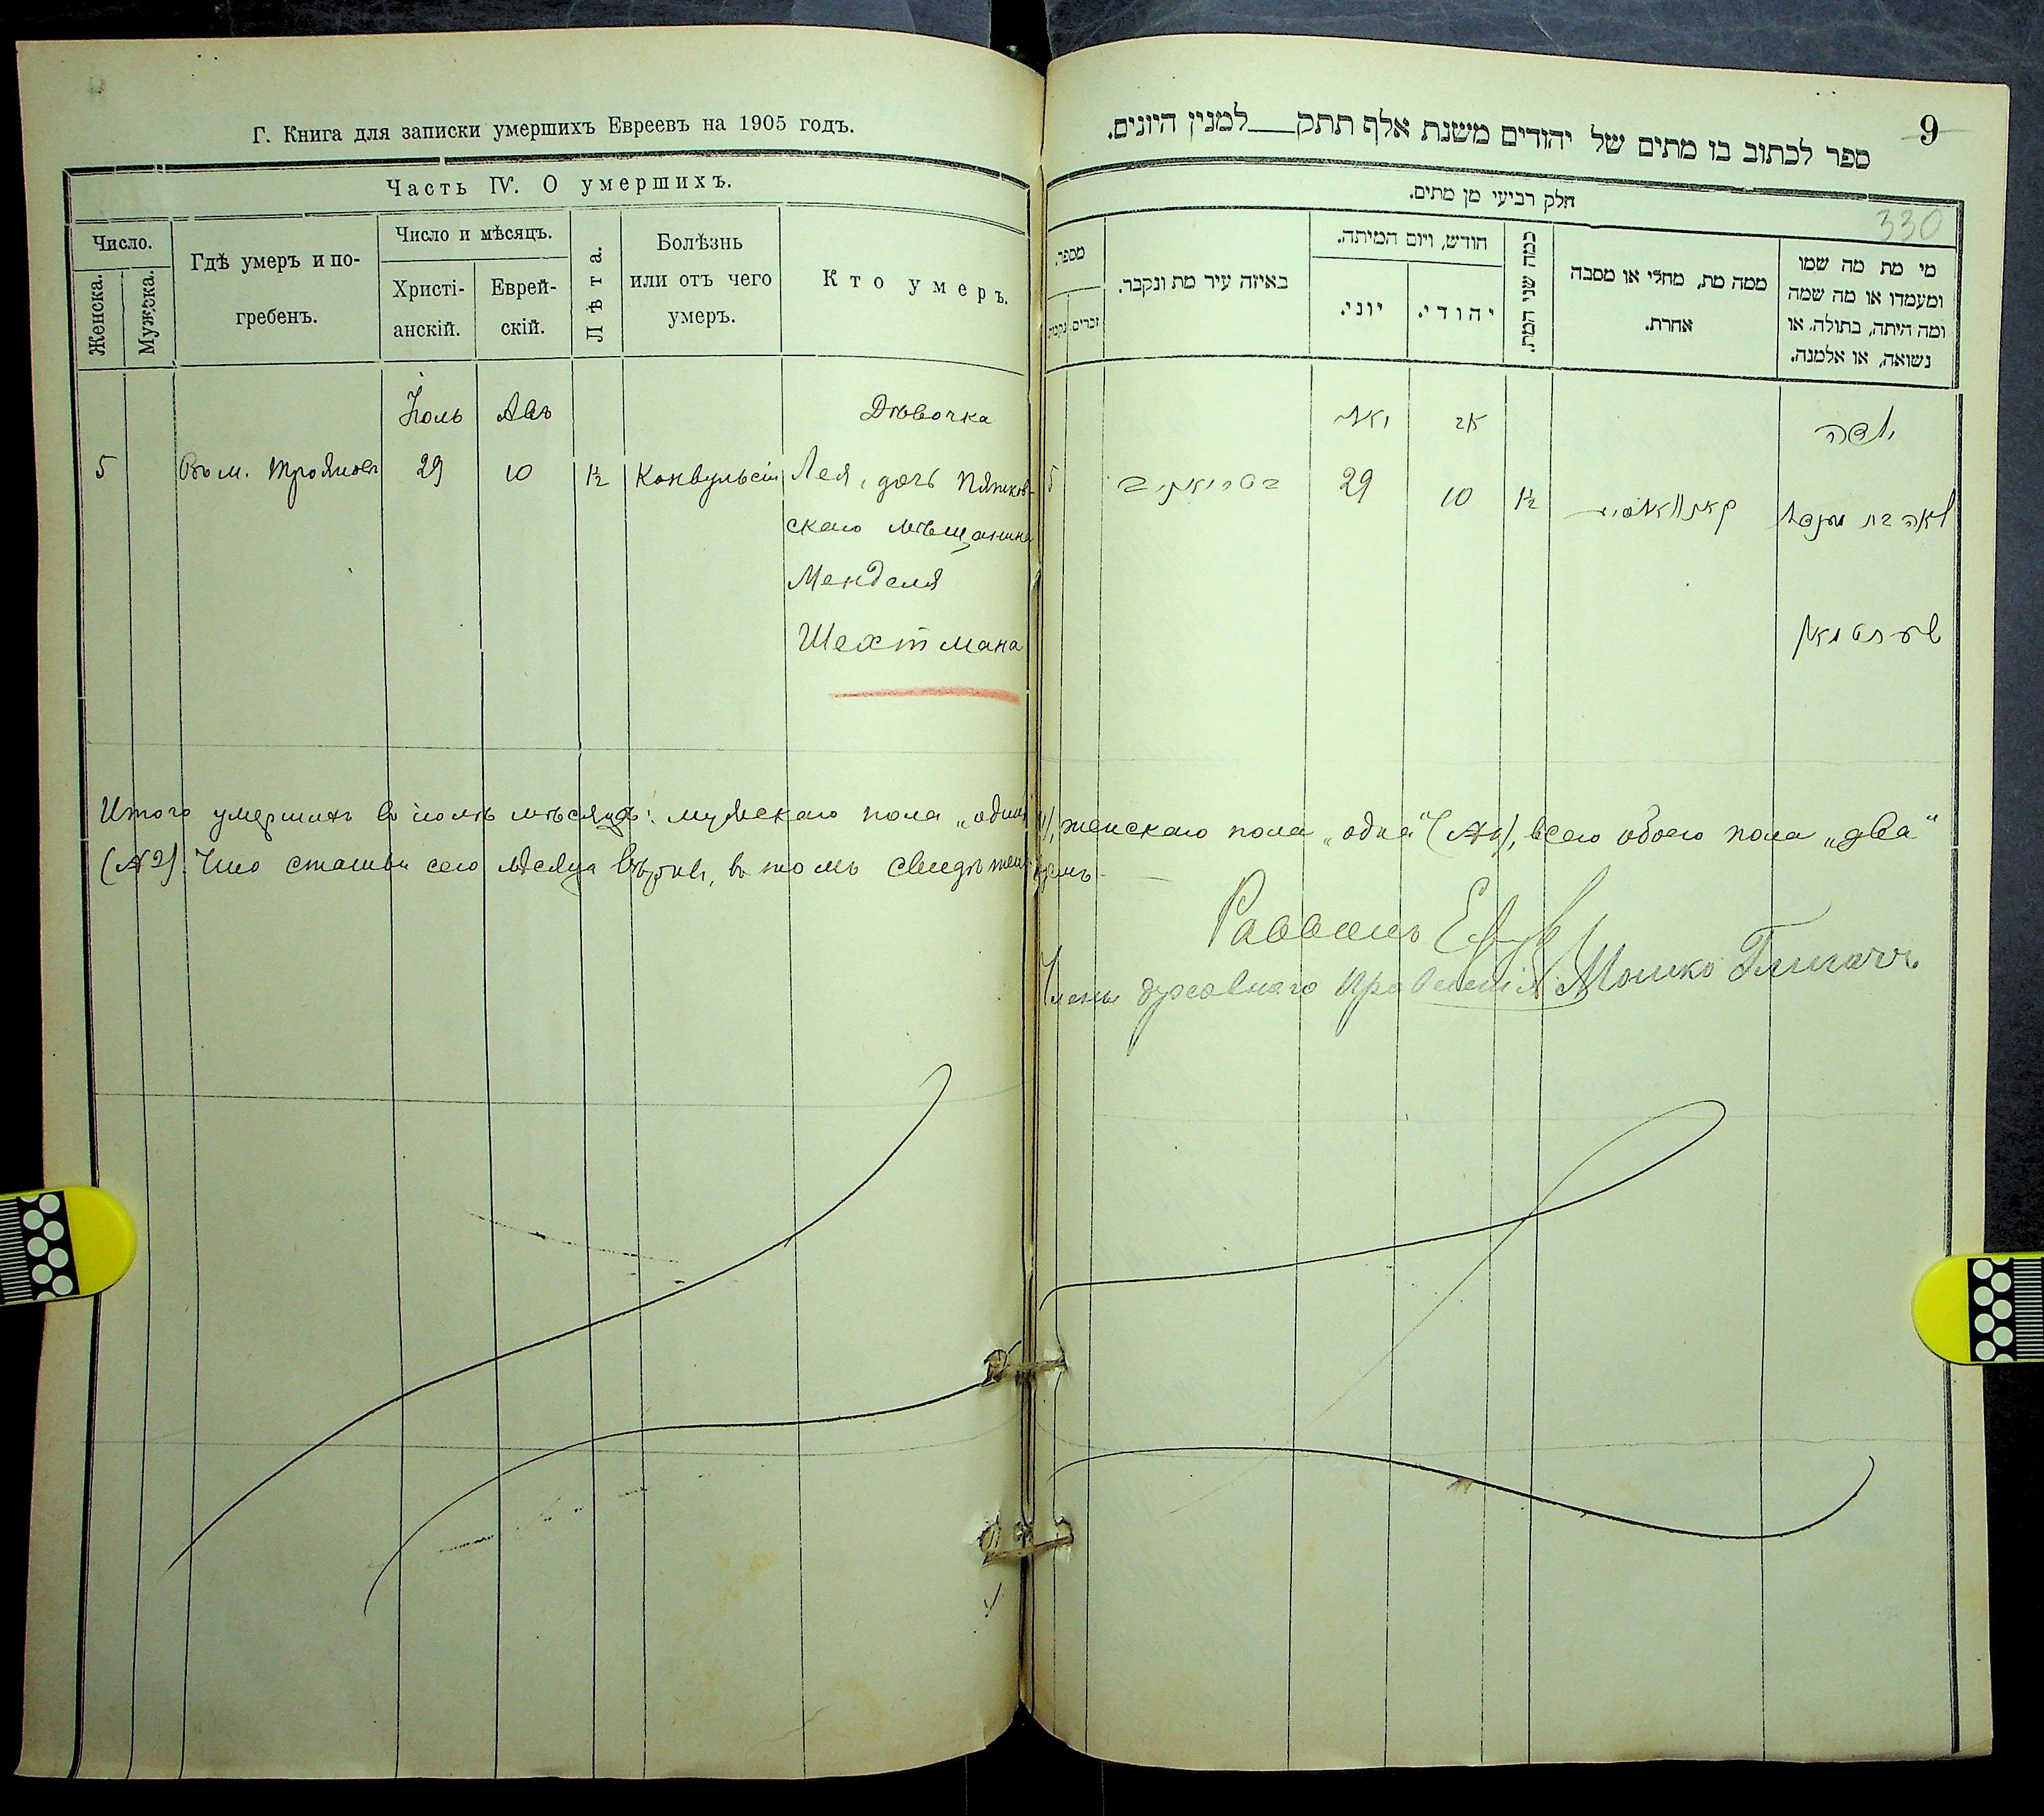 Г. Книга для записки умершихъ Евреевъ на 1905 годъ.
Часть IV. О умершихъ.
Число.
Женска.
Мужска.
Гдѣ умеръ и по-
гребенъ.
Число и мѣсяцъ.
Христі-
анскій.
Еврей-
скій.
Лѣта.
Болѣзнь
или отъ чего
умеръ.
Кто умеръ.
Іюль Авъ Дѣвочка
5 Въ м. Трояновъ 29 10 1½ Конвульсіи Лея, дочь Пятков-
скаго мѣщанина
Менделя
Шехтмана
ספר לכתוב בו מתים של יהודים משנת אלף תתק__למנין היונים.
9
חלק רביעי מן מתים.
330
מספר.
זכרים.
נקבות
באיזה עיר מת ונקבר.
חודש, ויום המיתה.
יוני.
יהודי.
כמה שני המת.
ממה מת, מחלי או מסבה
אחרת.
מי מת מה שמו
ומעמדו או מה שמה
ומה היתה, בתולה, או
נשואה, או אלמנה.
יולי אב ילדה
5 בטריאניב 29 10 1½ לאה בת מענדל
שעכטמאן
Итого умершихъ въ іюлѣ мѣсяцѣ: мужскаго пола „одинъ“, женскаго пола „одна“ (№1), всего обоего пола „два“
(№2). Что статьи сего мѣсяца вѣрны, въ томъ свидѣтельствуемъ
Раввинъ
Члены духовнаго Правленія Мошко